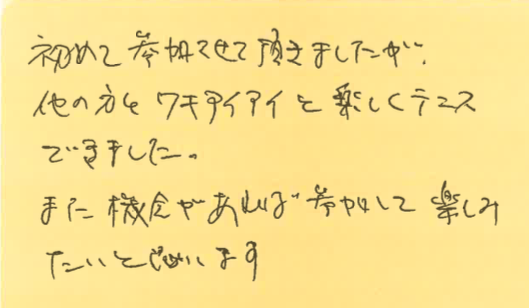 初めて参加させて頂きましたが、
他の方もワキアイアイと楽しくテニス
できました。
また機会があれば参加して楽しみ
たいと思います